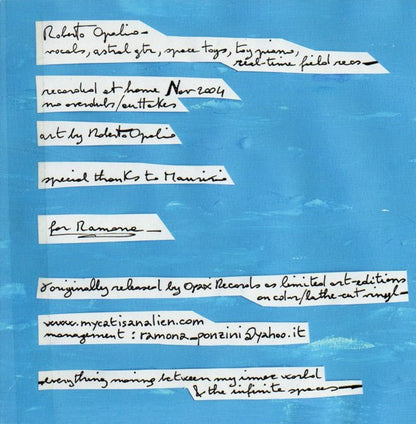 Roberto Opalio —
vocals, astral gtr, space toys, toy piano,
real-time field recs —
recorded at home Nov 2004
no overdubs/outtakes
art by Roberto Opalio
special thanks to Maurizio
for Ramona —
originally released by Opax Records as limited art-editions
on color/lathe-cut vinyl —
www.mycatisanalien.com
management : ramona_ponzini@yahoo.it
everything moving between my inner world
& the infinite spaces —